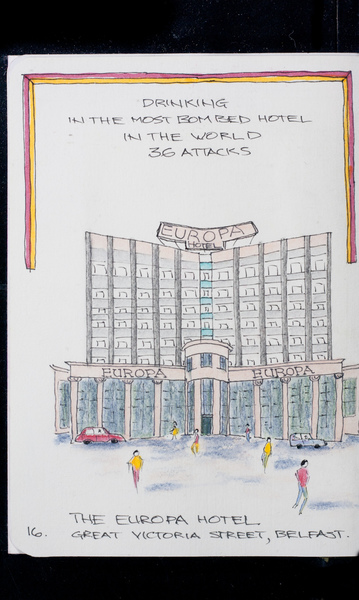 DRINKING
IN THE MOST BOMBED HOTEL
IN THE WORLD
36 ATTACKS
EUROPA
HOTEL
EUROPA EUROPA
THE EUROPA HOTEL
16. GREAT VICTORIA STREET, BELFAST.